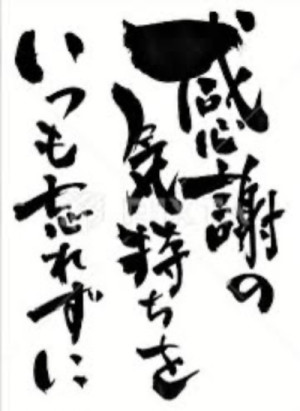 感謝の
気持ちを
いつも忘れずに